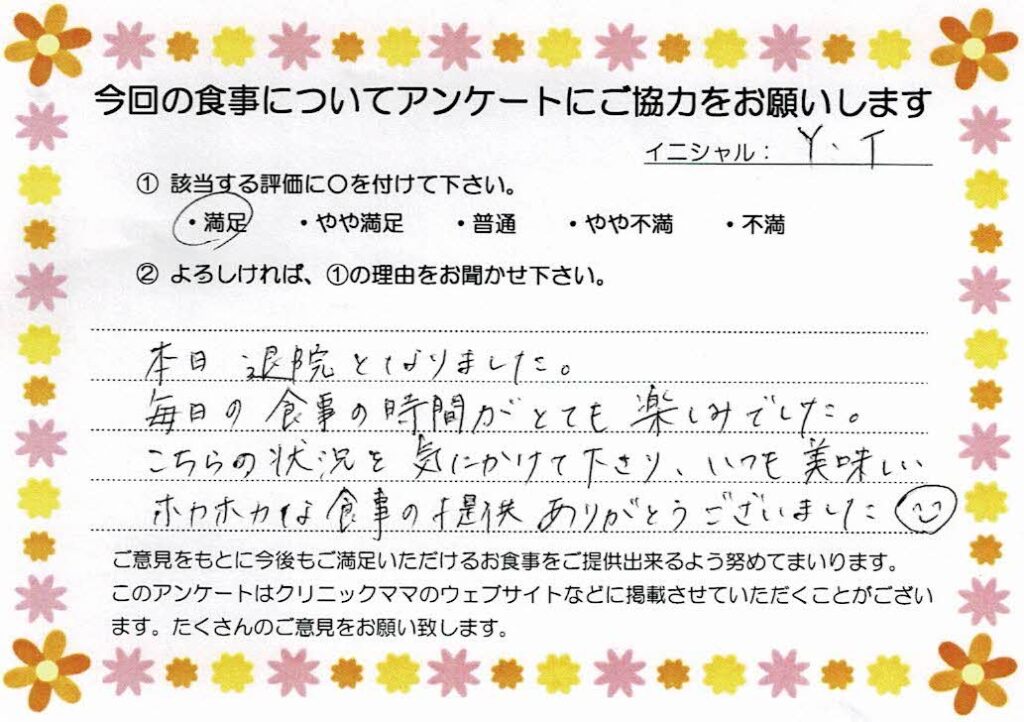 今回の食事についてアンケートにご協力をお願いします
イニシャル： Y.T
① 該当する評価に〇を付けて下さい。
・満足 ・やや満足 ・普通 ・やや不満 ・不満
② よろしければ、①の理由をお聞かせ下さい。
本日 退院となりました。
毎日の食事の時間がとても楽しみでした。
こちらの状況を気にかけて下さり、いつも美味しい
ホカホカな食事の提供ありがとうございました
ご意見をもとに今後もご満足いただけるお食事をご提供出来るよう努めてまいります。
このアンケートはクリニックママのウェブサイトなどに掲載させていただくことがござい
ます。たくさんのご意見をお願い致します。